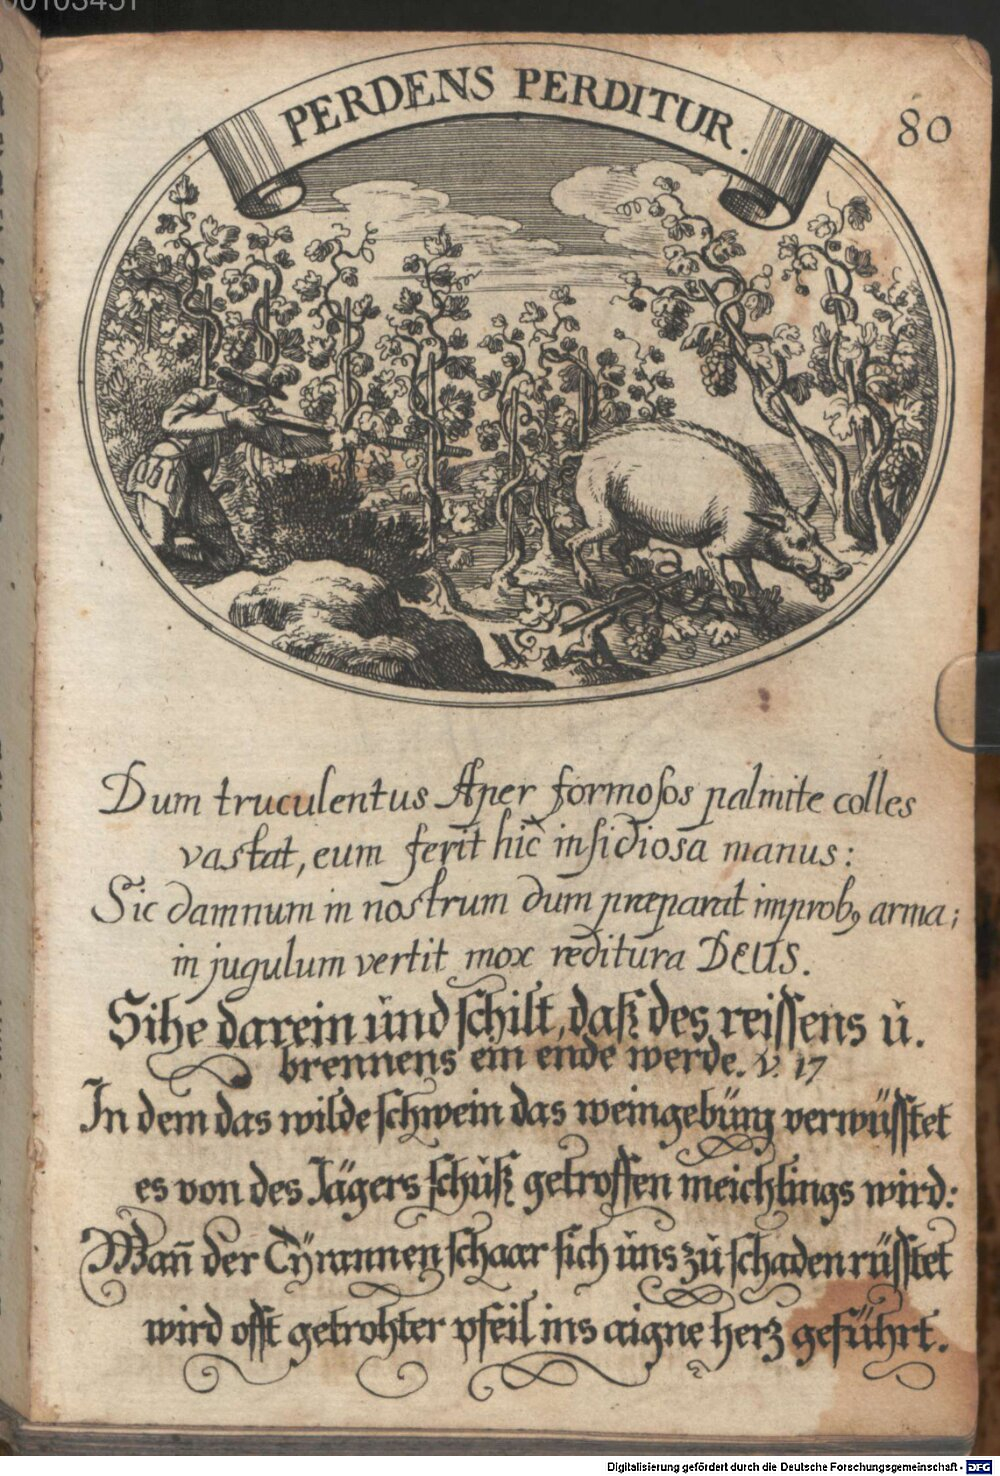 PERDENS PERDITUR.
80
Dum truculentus Aper formoſos palmite colles
vastat, eum ferit hic inſidiosa manus:
Sic damnum in nostrum dum præparat improbꝯ arma;
in jugulum vertit mox reditura DEUS.
Sihe darein ŭnd ſchilt, daß des reiſſens ŭ.
brennens ein ende werde. v. 17
In dem das wilde ſchwein das weingebürg verwüſſtet
es von des Jägers ſchŭß getroffen meichlings wird:
Wañ der Tÿrannen ſchaar ſich ŭns zŭ ſchaden rüſſtet
wird offt getrohter pfeil ins aigne herz geführt.
Digitalisierung gefördert durch die Deutsche Forschungsgemeinschaft - DFG